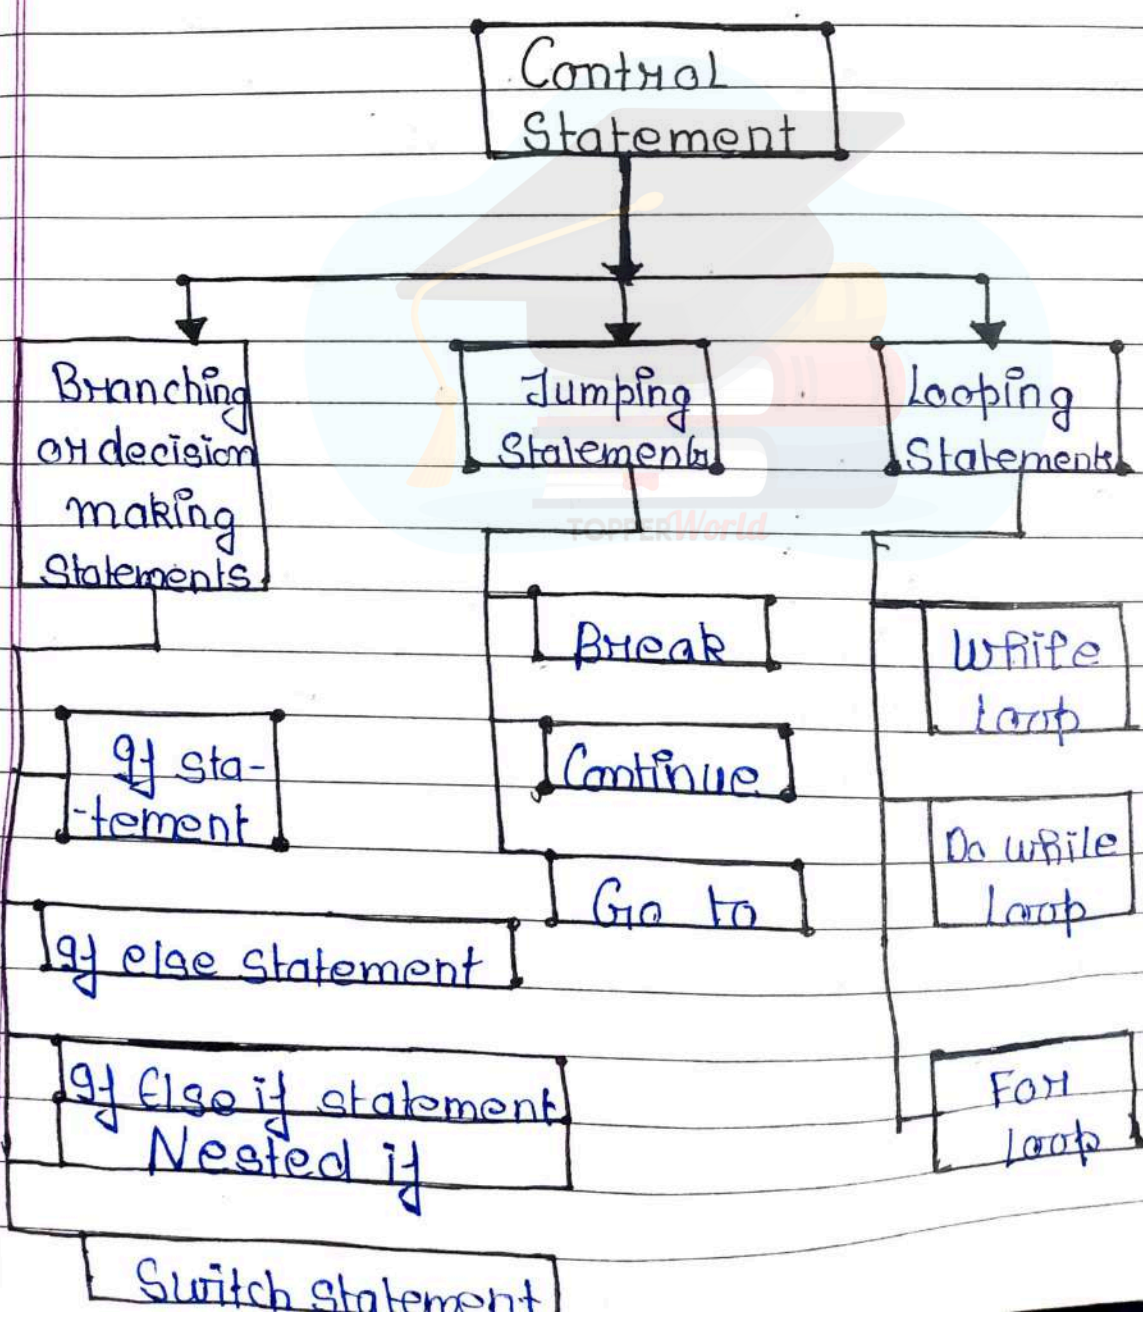 Control
Statement
Branching
or decision
making
Statements
Jumping
Statements
Looping
Statements
TOPPERWorld
If sta-
-tement
If else statement
If Else if statement
Nested if
Switch statement
Break
Continue
Go to
While
Loop
Do while
Loop
For
Loop